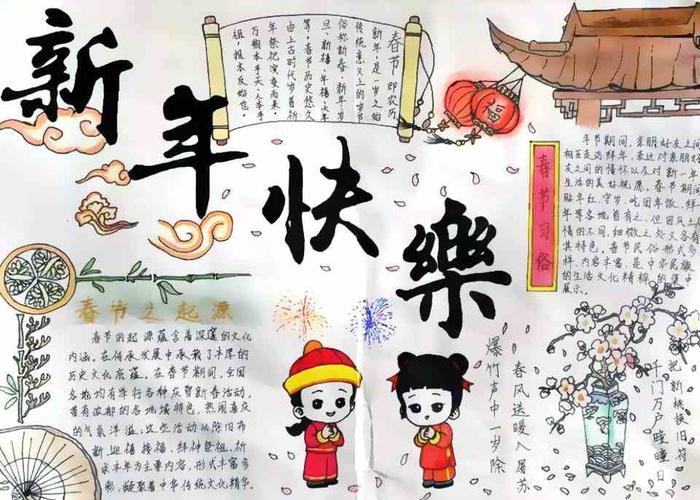 新年快樂
春节即农历
新年,是一岁之始
传统意义上的岁节
俗称新春、新年、岁
旦、新禧、年禧、大年
等,春节历史悠久,
由上古时代岁首祈
年祭祀演变而来。
万物本乎天、人本乎
祖,报本反始也。
春节习俗
年节期间,亲朋好友之间
相互走动拜年,表达对亲朋好
友之间的情怀以及对新一年
生活的美好祝愿。春节期间
贴年红、守岁、吃团年饭、拜
年等各地皆有之,但因风土人
情的不同,细微之处又各有
其特色。春节民俗形式多
样、内容丰富,是中华民族
的生活文化精粹的集中
展示。
春节之起源
春节的起源蕴含着深邃的文化
内涵,在传承发展中承载了丰厚的
历史文化底蕴。在春节期间,全国
各地均有举行各种庆贺新春活动,
带有浓郁的各地域特色,热闹喜庆
的气氛洋溢,这些活动以除旧布
新、迎禧接福、拜神祭祖、祈
求丰年为主要内容,形式丰富多
彩,凝聚着中华传统文化精华。
爆竹声中一岁除
春风送暖入屠苏
千门万户曈曈日
把新桃换旧符